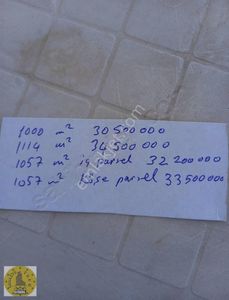 1000 m² 30500000
1114 m² 34500000
1057 m² iç parsel 32200000
1057 m² köşe parsel 33500000